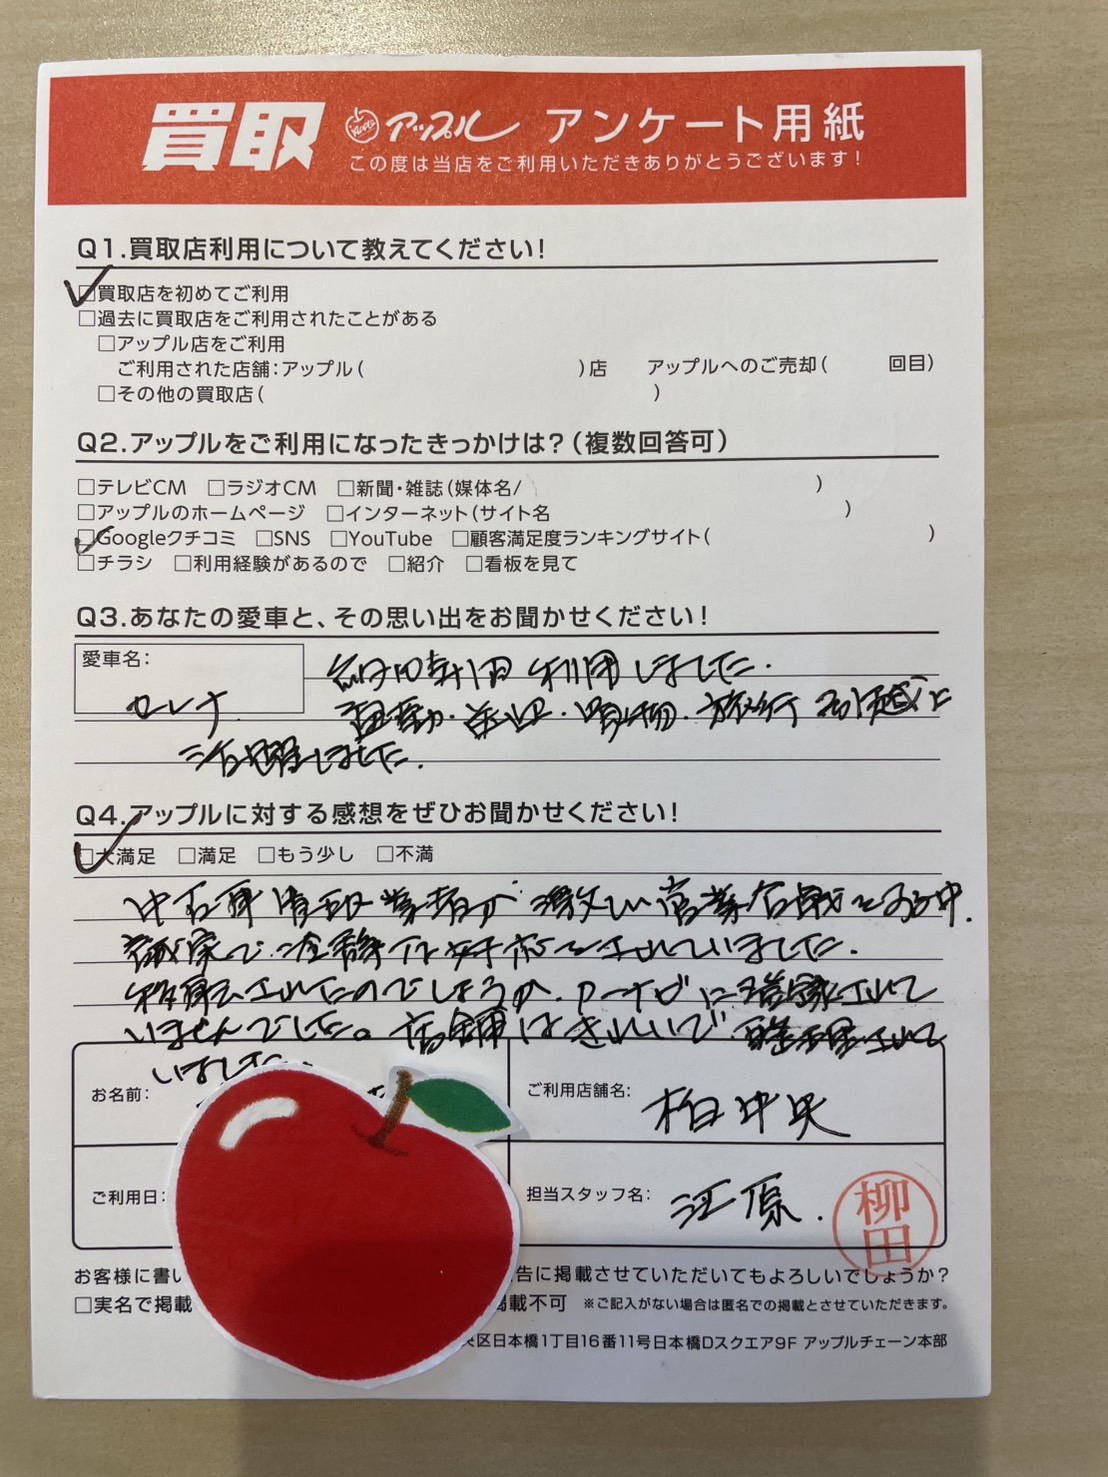 買取 アップル アンケート用紙
この度は当店をご利用いただきありがとうございます!
Q1.買取店利用について教えてください!
□買取店を初めてご利用
□過去に買取店をご利用されたことがある
□アップル店をご利用
ご利用された店舗:アップル( )店 アップルへのご売却( 回目)
□その他の買取店( )
Q2.アップルをご利用になったきっかけは?(複数回答可)
□テレビCM □ラジオCM □新聞・雑誌(媒体名/ )
□アップルのホームページ □インターネット(サイト名 )
□Googleクチコミ □SNS □YouTube □顧客満足度ランキングサイト( )
□チラシ □利用経験があるので □紹介 □看板を見て
Q3.あなたの愛車と、その思い出をお聞かせください!
愛車名:
セレナ 利用しました.
通勤・送迎・買物・旅行 引越に
活躍しました.
Q4.アップルに対する感想をぜひお聞かせください!
□大満足 □満足 □もう少し □不満
中古車買取業者が激しい営業合戦をする中.
誠実で冷静な対応をされていました.
されたのでしょうか.カーナビに登録されて
いませんでした。店舗はきれいで整理されて
いました.
お名前: ご利用店舗名: 柏中央
ご利用日: 担当スタッフ名: 江原. 柳田
お客様に書い 告に掲載させていただいてもよろしいでしょうか?
□実名で掲載 掲載不可 ※ご記入がない場合は匿名での掲載とさせていただきます。
区日本橋1丁目16番11号日本橋Dスクエア9F アップルチェーン本部